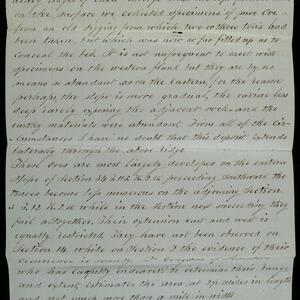 heavy
on the surface we collected specimens of pure Ore
from an old digging from which two or three tons had
been taken, but which was now so far filled up as to
Conceal the bed. It is not unfrequent to meet with
specimens on the western flank but they are by no
means so abundant as on the Eastern, for the reason
perhaps, the slope is more gradual, the ravine less
deep rarely exposing the adjacent rock and the
earthy materials more abundant. From all of the Cir-
cumstances I have no doubt that this deposit extends
laterally through the above ridge.
These ores are most largely developed on the eastern
slope of Section 34 & 112 R. 2. E. proceeding Southward the
traces become less numerous on the adjoining Section
3 T. 12 R. 2. E. while in the Section next succeeding they
fail altogether. Their extension east and west is
equally restricted. They have not been observed on
Section 14. while on Section 2 the evidence of their
occurrence is scanty.
who has carefully endeavored to determine their range
and extent estimates the area at 2½ miles in length
and not much more than a mile in width